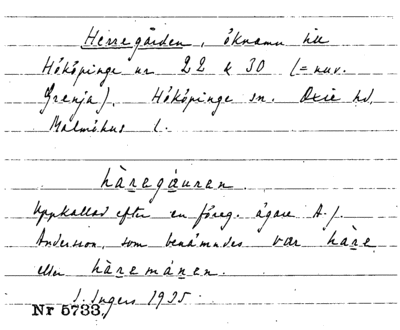 Herregården, öknamn till
Hököpinge nr 22 & 30 (= nuv.
Grenja). Hököpinge sn. Oxie hd,
Malmöhus l.
hàregáuren.
Uppkallad efter en föreg. ägare A. J.
Andersson, som benämndes var hàre
eller hàremánen.
I. Ingers 1935.
Nr 5733